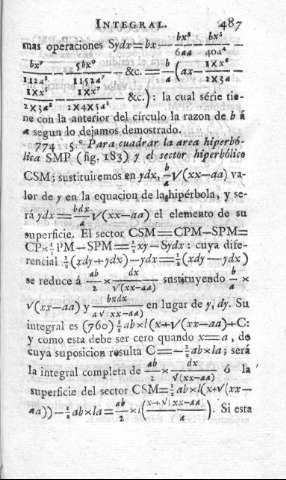 INTEGRAL. 487
mas operaciones Sydx=bx— bx³/6aa — bx⁵/40a⁴ —
bx⁷/112a⁶ — 5bx⁹/1152a⁸ — &c. = b/a (ax— 1Xx³/2X3a —
1Xx⁵/2X4X5a³ — &c.): la cual série tie-
ne con la anterior del círculo la razon de b á
a segun lo dejamos demostrado.
774 5.° Para cuadrar la area hiperbó-
lica SMP (fig. 183) y el sector hiperbólico
CSM; sustituirémos en ydx, b/a √(xx—aa) va-
lor de y en la equacion de la hipérbola, y se-
rá ydx= bdx/a √(xx—aa) el elemento de su
superficie. El sector CSM=CPM—SPM=
CP×½PM—SPM=½xy—Sydx: cuya dife-
rencial ½(xdy+ydx)—ydx=½(xdy—ydx)
se reduce á ab/2 × dx/√(xx—aa) sustituyendo b/a ×
√(xx—aa) y bxdx/a√(xx—aa) en lugar de y, dy. Su
integral es (760) ½ab×l(x+√(xx—aa)+C:
y como esta debe ser cero quando x=a, de
cuya suposicion resulta C=—½ab×la; será
la integral completa de ab/2 × dx/√(xx—aa) ó la
superficie del sector CSM=½ab×l(x+√(xx—
aa))—½ab×la= ab/2 ×l(x+√(xx—aa)/a). Si esta